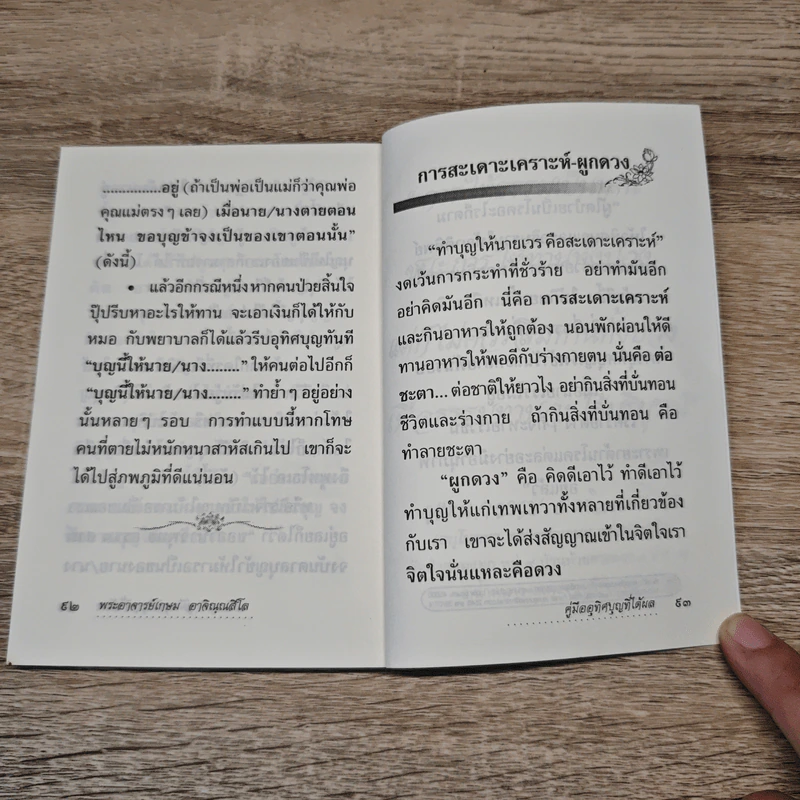 ...............อยู่ (ถ้าเป็นพ่อเป็นแม่ก็ว่าคุณพ่อ
คุณแม่ตรงๆ เลย) เมื่อนาย/นางตายตอน
ไหน ขอบุญข้าจงเป็นของเขาตอนนั้น"
(ดังนี้)
• แล้วอีกกรณีหนึ่งหากคนป่วยสิ้นใจ
ปุ๊ปรีบหาอะไรให้ทาน จะเอาเงินก็ได้ให้กับ
หมอ กับพยาบาลก็ได้แล้วรีบอุทิศบุญทันที
"บุญนี้ให้นาย/นาง........" ให้คนต่อไปอีกก็
"บุญนี้ให้นาย/นาง........" ทำย้ำๆ อยู่อย่าง
นั้นหลายๆ รอบ การทำแบบนี้หากโทษ
คนที่ตายไม่หนักหนาสาหัสเกินไป เขาก็จะ
ได้ไปสู่ภพภูมิที่ดีแน่นอน
๙๒ พระอาจารย์เกษม อาจิณฺณสีโล
การสะเดาะเคราะห์-ผูกดวง
"ทำบุญให้นายเวร คือสะเดาะเคราะห์"
งดเว้นการกระทำที่ชั่วร้าย อย่าทำมันอีก
อย่าคิดมันอีก นี่คือ การสะเดาะเคราะห์
และกินอาหารให้ถูกต้อง นอนพักผ่อนให้ดี
ทานอาหารให้พอดีกับร่างกายตน นั่นคือ ต่อ
ชะตา... ต่อชาติให้ยาวไง อย่ากินสิ่งที่บั่นทอน
ชีวิตและร่างกาย ถ้ากินสิ่งที่บั่นทอน คือ
ทำลายชะตา
"ผูกดวง" คือ คิดดีเอาไว้ ทำดีเอาไว้
ทำบุญให้แก่เทพเทวาทั้งหลายที่เกี่ยวข้อง
กับเรา เขาจะได้ส่งสัญญาณเข้าในจิตใจเรา
จิตใจนั่นแหละคือดวง
คู่มืออุทิศบุญที่ได้ผล ๙๓